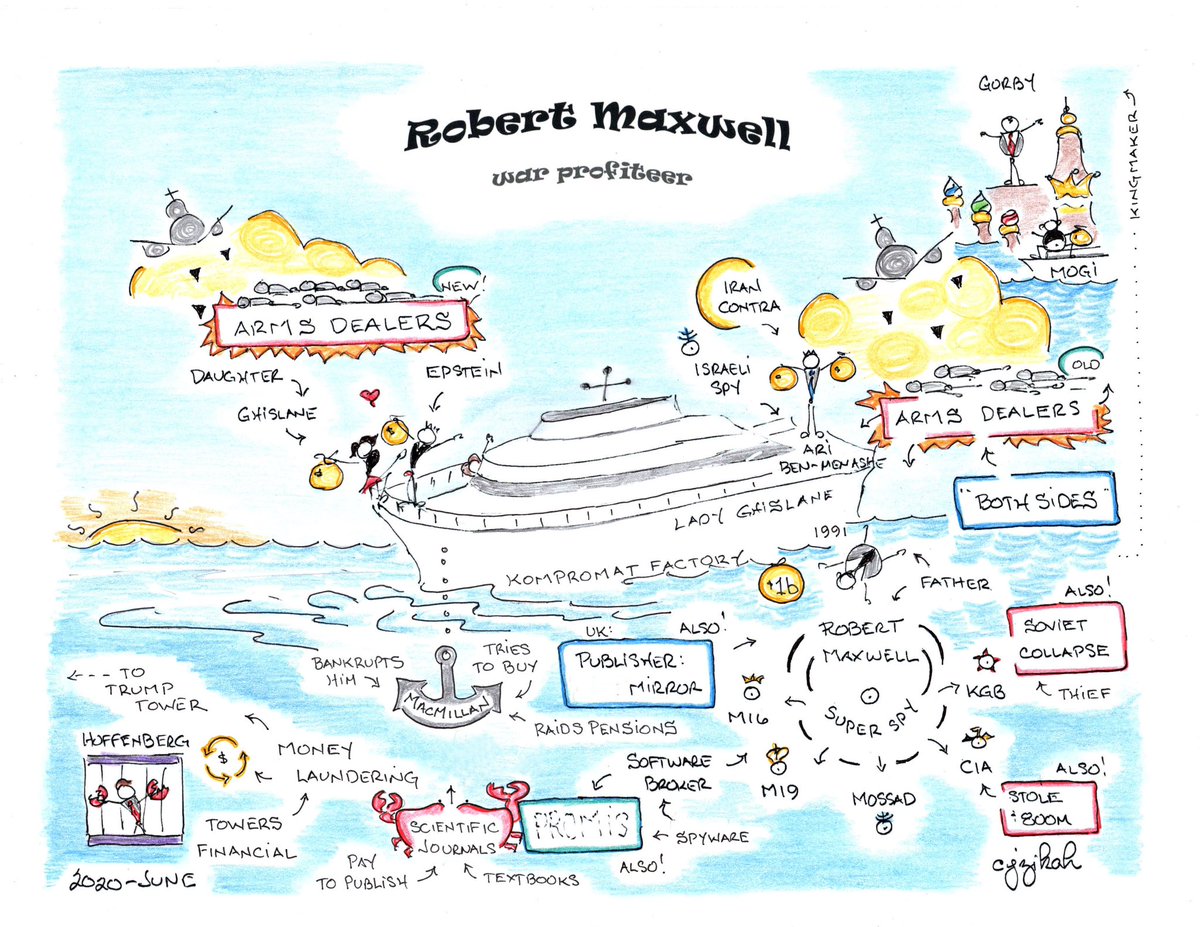 Robert Maxwell
war profiteer
GORBY
KINGMAKER
MOGI
NEW!
ARMS DEALERS
DAUGHTER
GHISLANE
EPSTEIN
IRAN
CONTRA
ISRAELI
SPY
OLD
ARMS DEALERS
ARI
BEN-MENASHE
"BOTH SIDES"
LADY GHISLANE
1991
KOMPROMAT FACTORY
$1b
FATHER
ALSO!
SOVIET
COLLAPSE
THIEF
UK:
ALSO!
PUBLISHER:
MIRROR
ROBERT
MAXWELL
SUPER SPY
KGB
MI6
MI9
MOSSAD
CIA
ALSO!
STOLE
$800M
BANKRUPTS
HIM
TRIES
TO BUY
MACMILLAN
RAIDS PENSIONS
TO
TRUMP
TOWER
HOFFENBERG
$
MONEY
LAUNDERING
TOWERS
FINANCIAL
SOFTWARE
BROKER
SCIENTIFIC
JOURNALS
PROMIS
SPYWARE
ALSO!
PAY
TO PUBLISH
TEXTBOOKS
2020-JUNE
cjzjkah